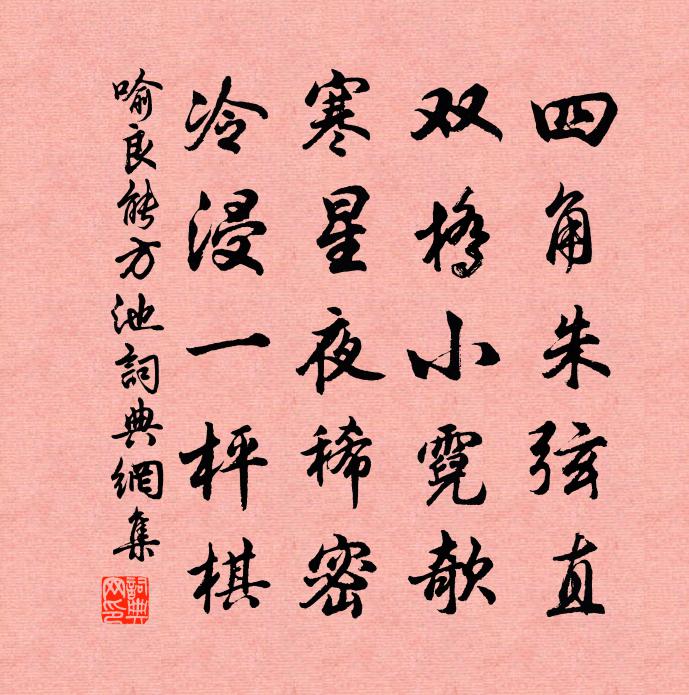 四角朱弦直
双橋小霓欹
寒星夜稀密
冷浸一枰棋
喻良能方池詞典網集
詞典网印